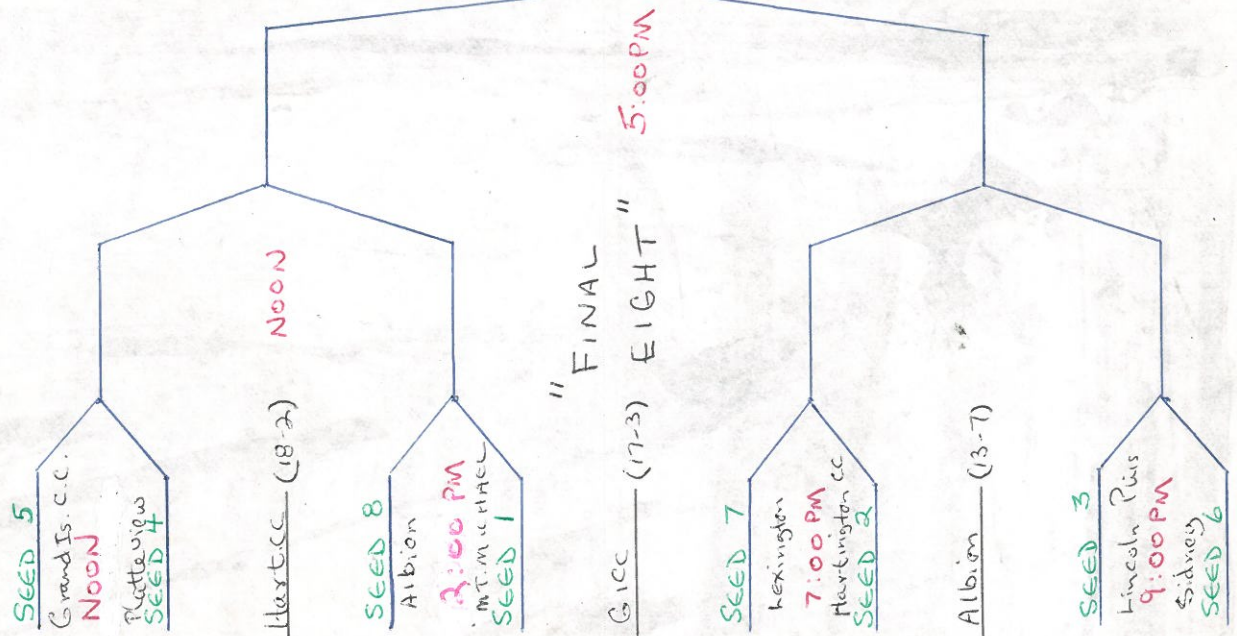 SEED 5
Grand Is. C.C.
NOON
Platteview
SEED 4
Hart.CC (18-2)
NOON
SEED 8
Albion
2:00 PM
MT. MICHAEL
SEED 1
"FINAL
EIGHT"
5:00 PM
GICC (17-3)
SEED 7
Lexington
7:00 PM
Hartington CC
SEED 2
Albion (13-7)
SEED 3
Lincoln Pius
9:00 PM
Sidney
SEED 6